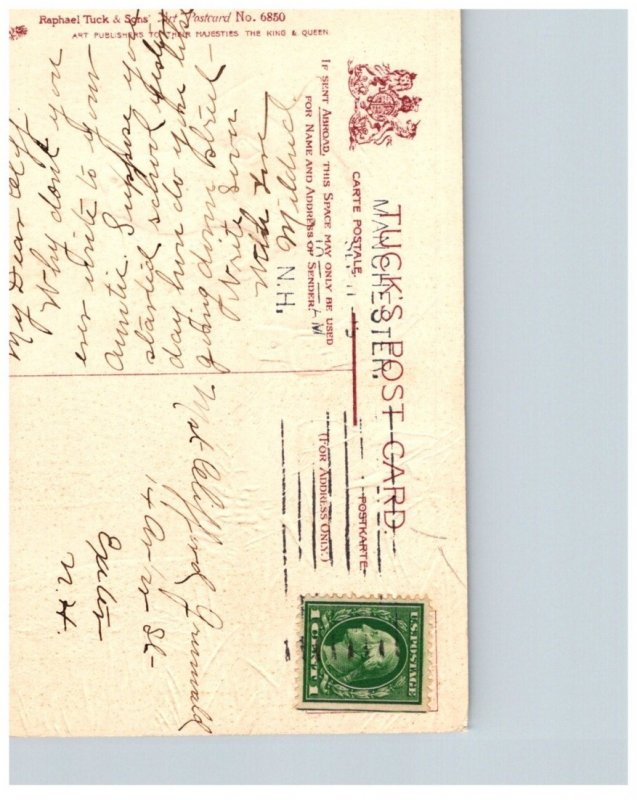 Raphael Tuck & Sons' Art Postcard No. 6850
ART PUBLISHERS TO THEIR MAJESTIES THE KING & QUEEN
TUCK'S POST CARD.
CARTE POSTALE.
POSTKARTE
IF SENT ABROAD, THIS SPACE MAY ONLY BE USED
FOR NAME AND ADDRESS OF SENDER.
(FOR ADDRESS ONLY.)
MANCHESTER,
N.H.
U.S. POSTAGE
1 CENT 1
My Dear Cliff.
Why don't you
ever write to your
Auntie. Suppose you
started school
day how do you like
going down street
Write soon
With love
Mildred
Mst. Clifford Grunwald
St-
Exeter
N.H.